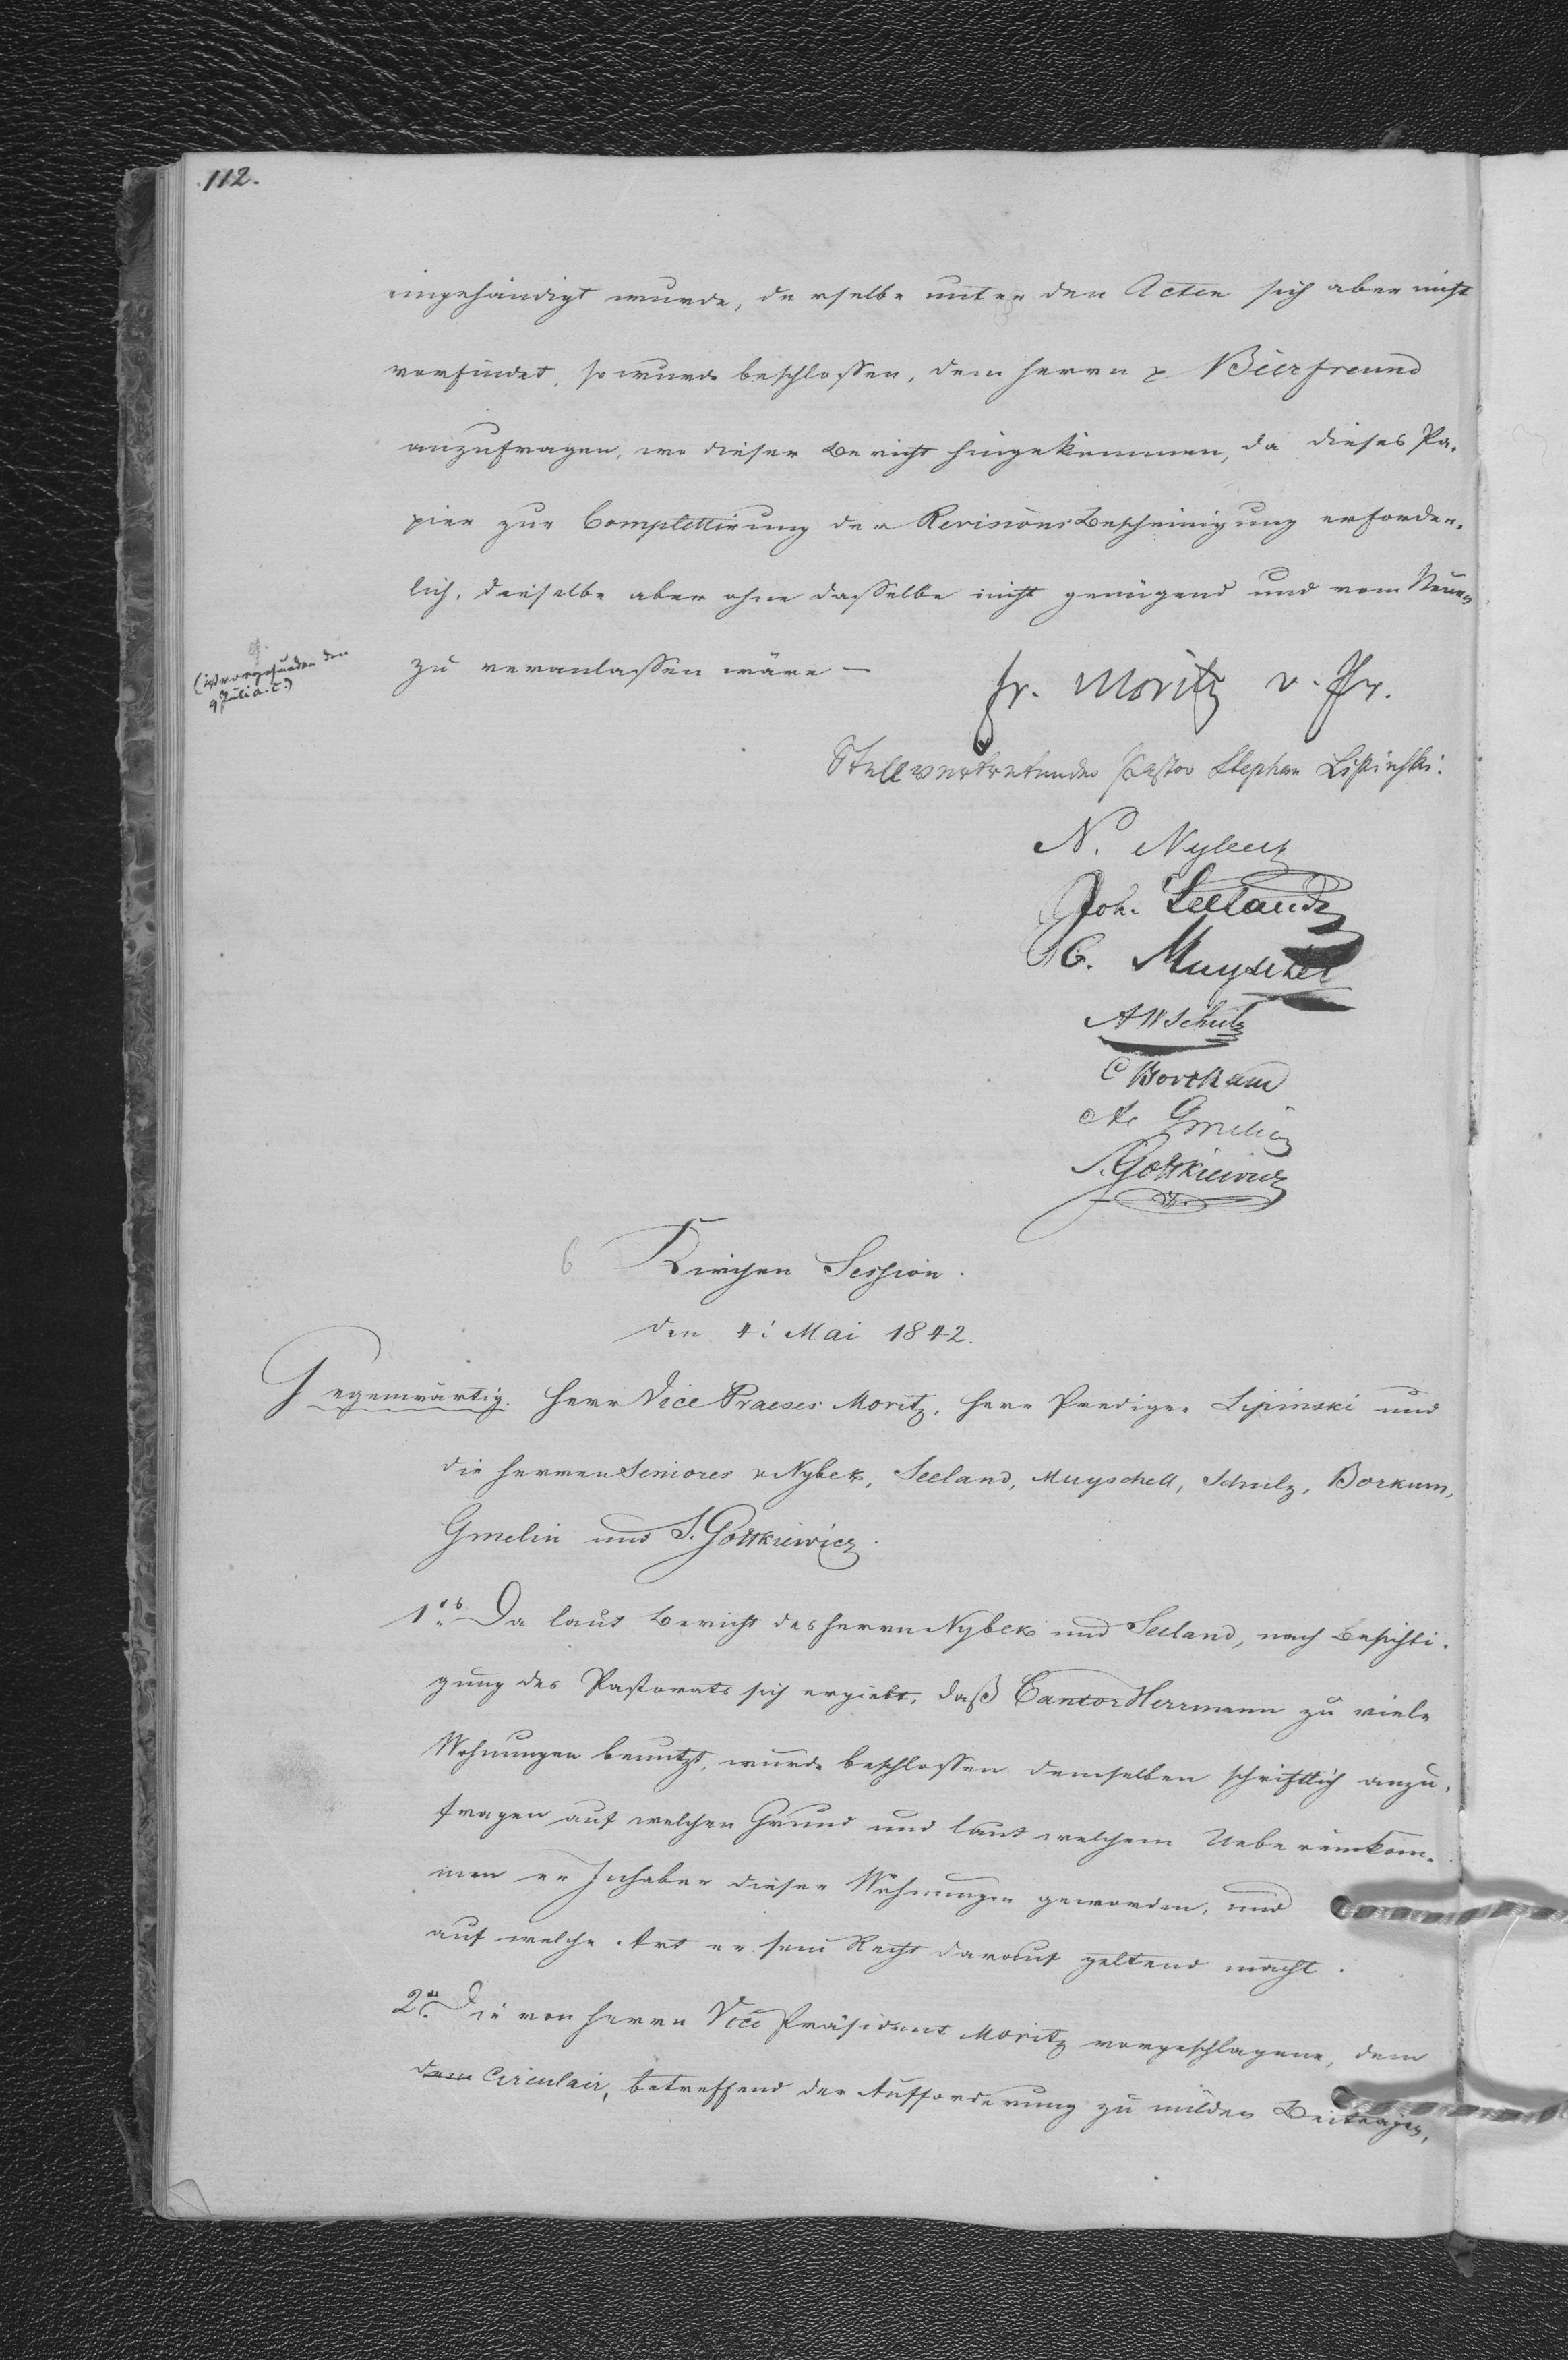 112.
eingehändigt wurde, derselbe unter den Acten sich aber nicht
vorfindet, so wurde beschlossen, dem Herrn v Bierfreund
anzufragen, wo dieser Bericht hingekommen, da dieses Pa-
pier zur Complettirung der Revisions Bescheinigung erforder-
lich, dieselbe aber ohne dasselbe nicht genügend und vom Neuen
zu veranlassen wäre —
(ist vorgefunden den
9 Juli a. c.)
Fr. Moritz v. Pr.
Stellvertretender Pastor Stephan Lipinski.
N. Nybek
Joh. Seeland
C. Muyschel
A W Schulz
C Borkum
A. Gmelin
S. Gottkiewicz
6 Kirchen Session.
den 4: Mai 1842.
Gegenwärtig. Herr Vice Praeses Moritz, Herr Prediger Lipinski und
die Herren Seniores v Nybek, Seeland, Muyschell, Schulz, Borkum,
Gmelin und S. Gottkiewicz.
1. Da laut Bericht des Herrn Nybek und Seeland, nach Besichti-
gung des Pastorats sich ergiebt, daß Cantor Herrmann zu viele
Wohnungen benutzt, wurde beschlossen demselben schriftlich anzu-
fragen auf welchen Grund und laut welchem Uebereinkom-
men er Inhaber dieser Wohnungen geworden, und
auf welche Art er sein Recht darauf geltend macht.
2. Die von Herrn Vice Präsident Moritz vorgeschlagene, dem
dem Circulair, betreffend der Aufforderung zu milden Beiträgen,